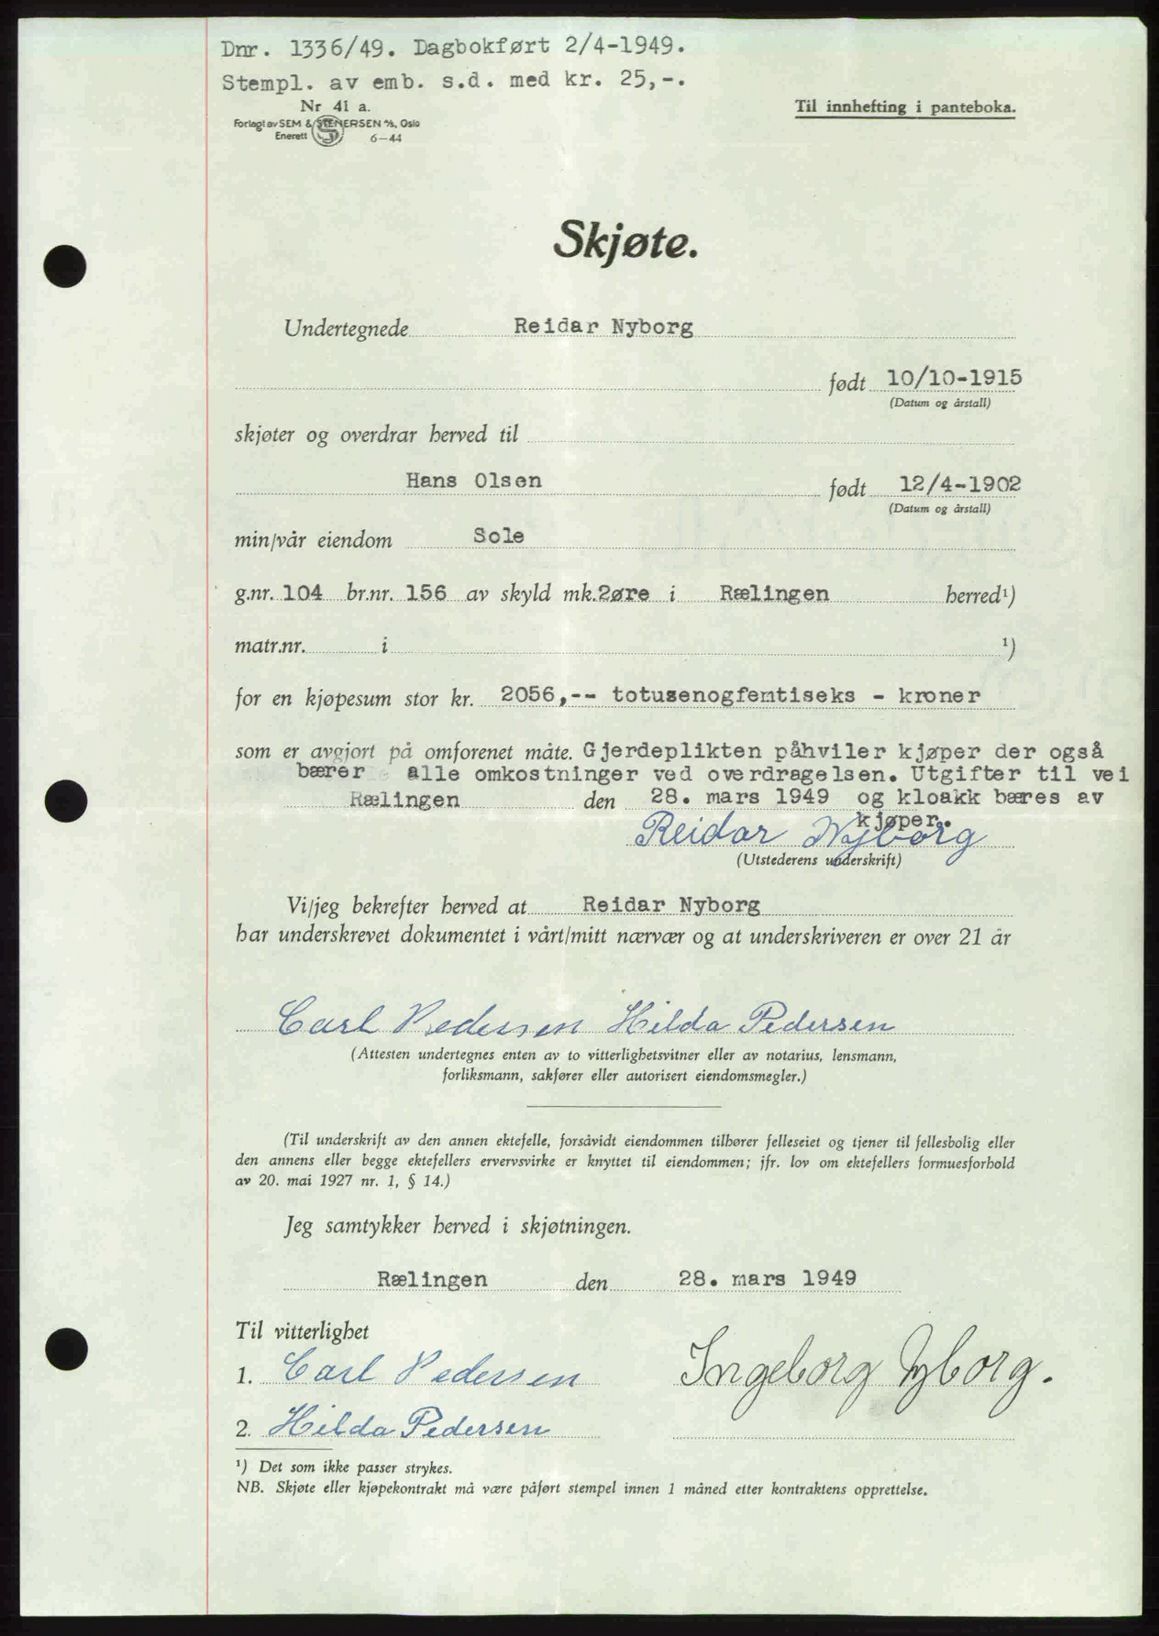 Dnr. 1336/49. Dagbokført 2/4-1949.
Stempl. av emb. s.d. med kr. 25,-.
Nr 41 a.
Til innhefting i panteboka.
Forlagt av SEM & STENERSEN A/S, Oslo
Enerett 6-44
Skjøte.
Undertegnede Reidar Nyborg
født 10/10-1915
(Datum og årstall)
skjøter og overdrar herved til
Hans Olsen født 12/4-1902
(Datum og årstall)
min/vår eiendom Sole
g.nr. 104 br.nr. 156 av skyld mk. 2øre i Rælingen herred¹)
matr.nr. i ¹)
for en kjøpesum stor kr. 2056,-- totusenogfemtiseks - kroner
som er avgjort på omforenet måte. Gjerdeplikten påhviler kjøper der også
bærer alle omkostninger ved overdragelsen. Utgifter til vei
Rælingen den 28. mars 1949 og kloakk bæres av
kjøper.
Reidar Nyborg
(Utstederens underskrift)
Vi/jeg bekrefter herved at Reidar Nyborg
har underskrevet dokumentet i vårt/mitt nærvær og at underskriveren er over 21 år
Carl Pedersen Hilda Pedersen
(Attesten undertegnes enten av to vitterlighetsvitner eller av notarius, lensmann,
forliksmann, sakfører eller autorisert eiendomsmegler.)
(Til underskrift av den annen ektefelle, forsåvidt eiendommen tilhører felleseiet og tjener til fellesbolig eller
den annens eller begge ektefellers ervervsvirke er knyttet til eiendommen; jfr. lov om ektefellers formuesforhold
av 20. mai 1927 nr. 1, § 14.)
Jeg samtykker herved i skjøtningen.
Rælingen den 28. mars 1949
Til vitterlighet
1. Carl Pedersen Ingeborg Nyborg.
2. Hilda Pedersen
¹) Det som ikke passer strykes.
NB. Skjøte eller kjøpekontrakt må være påført stempel innen 1 måned etter kontraktens opprettelse.